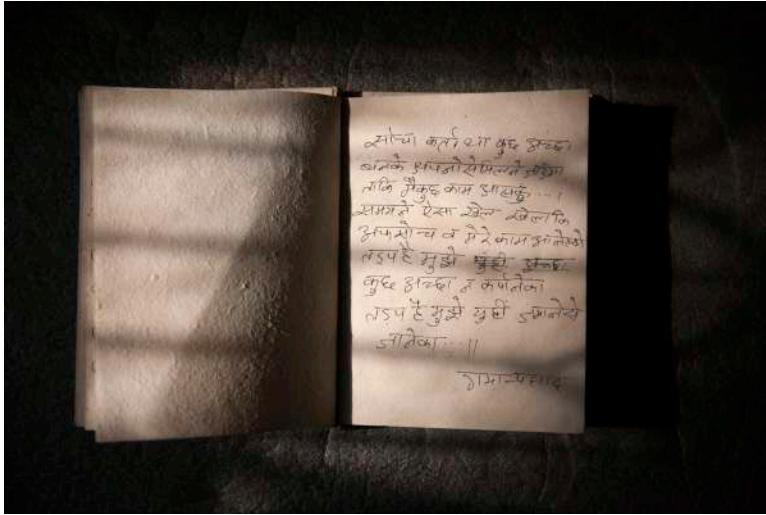 सोचा कर्ता था कुछ अच्छा
बनके अपनोसे मिलने जाउंगा
ताकि मैं कुछ काम आ सकुं....।
समयने ऐसा खेल खेला कि
अफसोच व मेरे काम आनेको
तड़प है मुझे
कुछ अच्छा न कर्पानेका
तड़प है मुझे युहीं जमानेसे
जानेका....॥